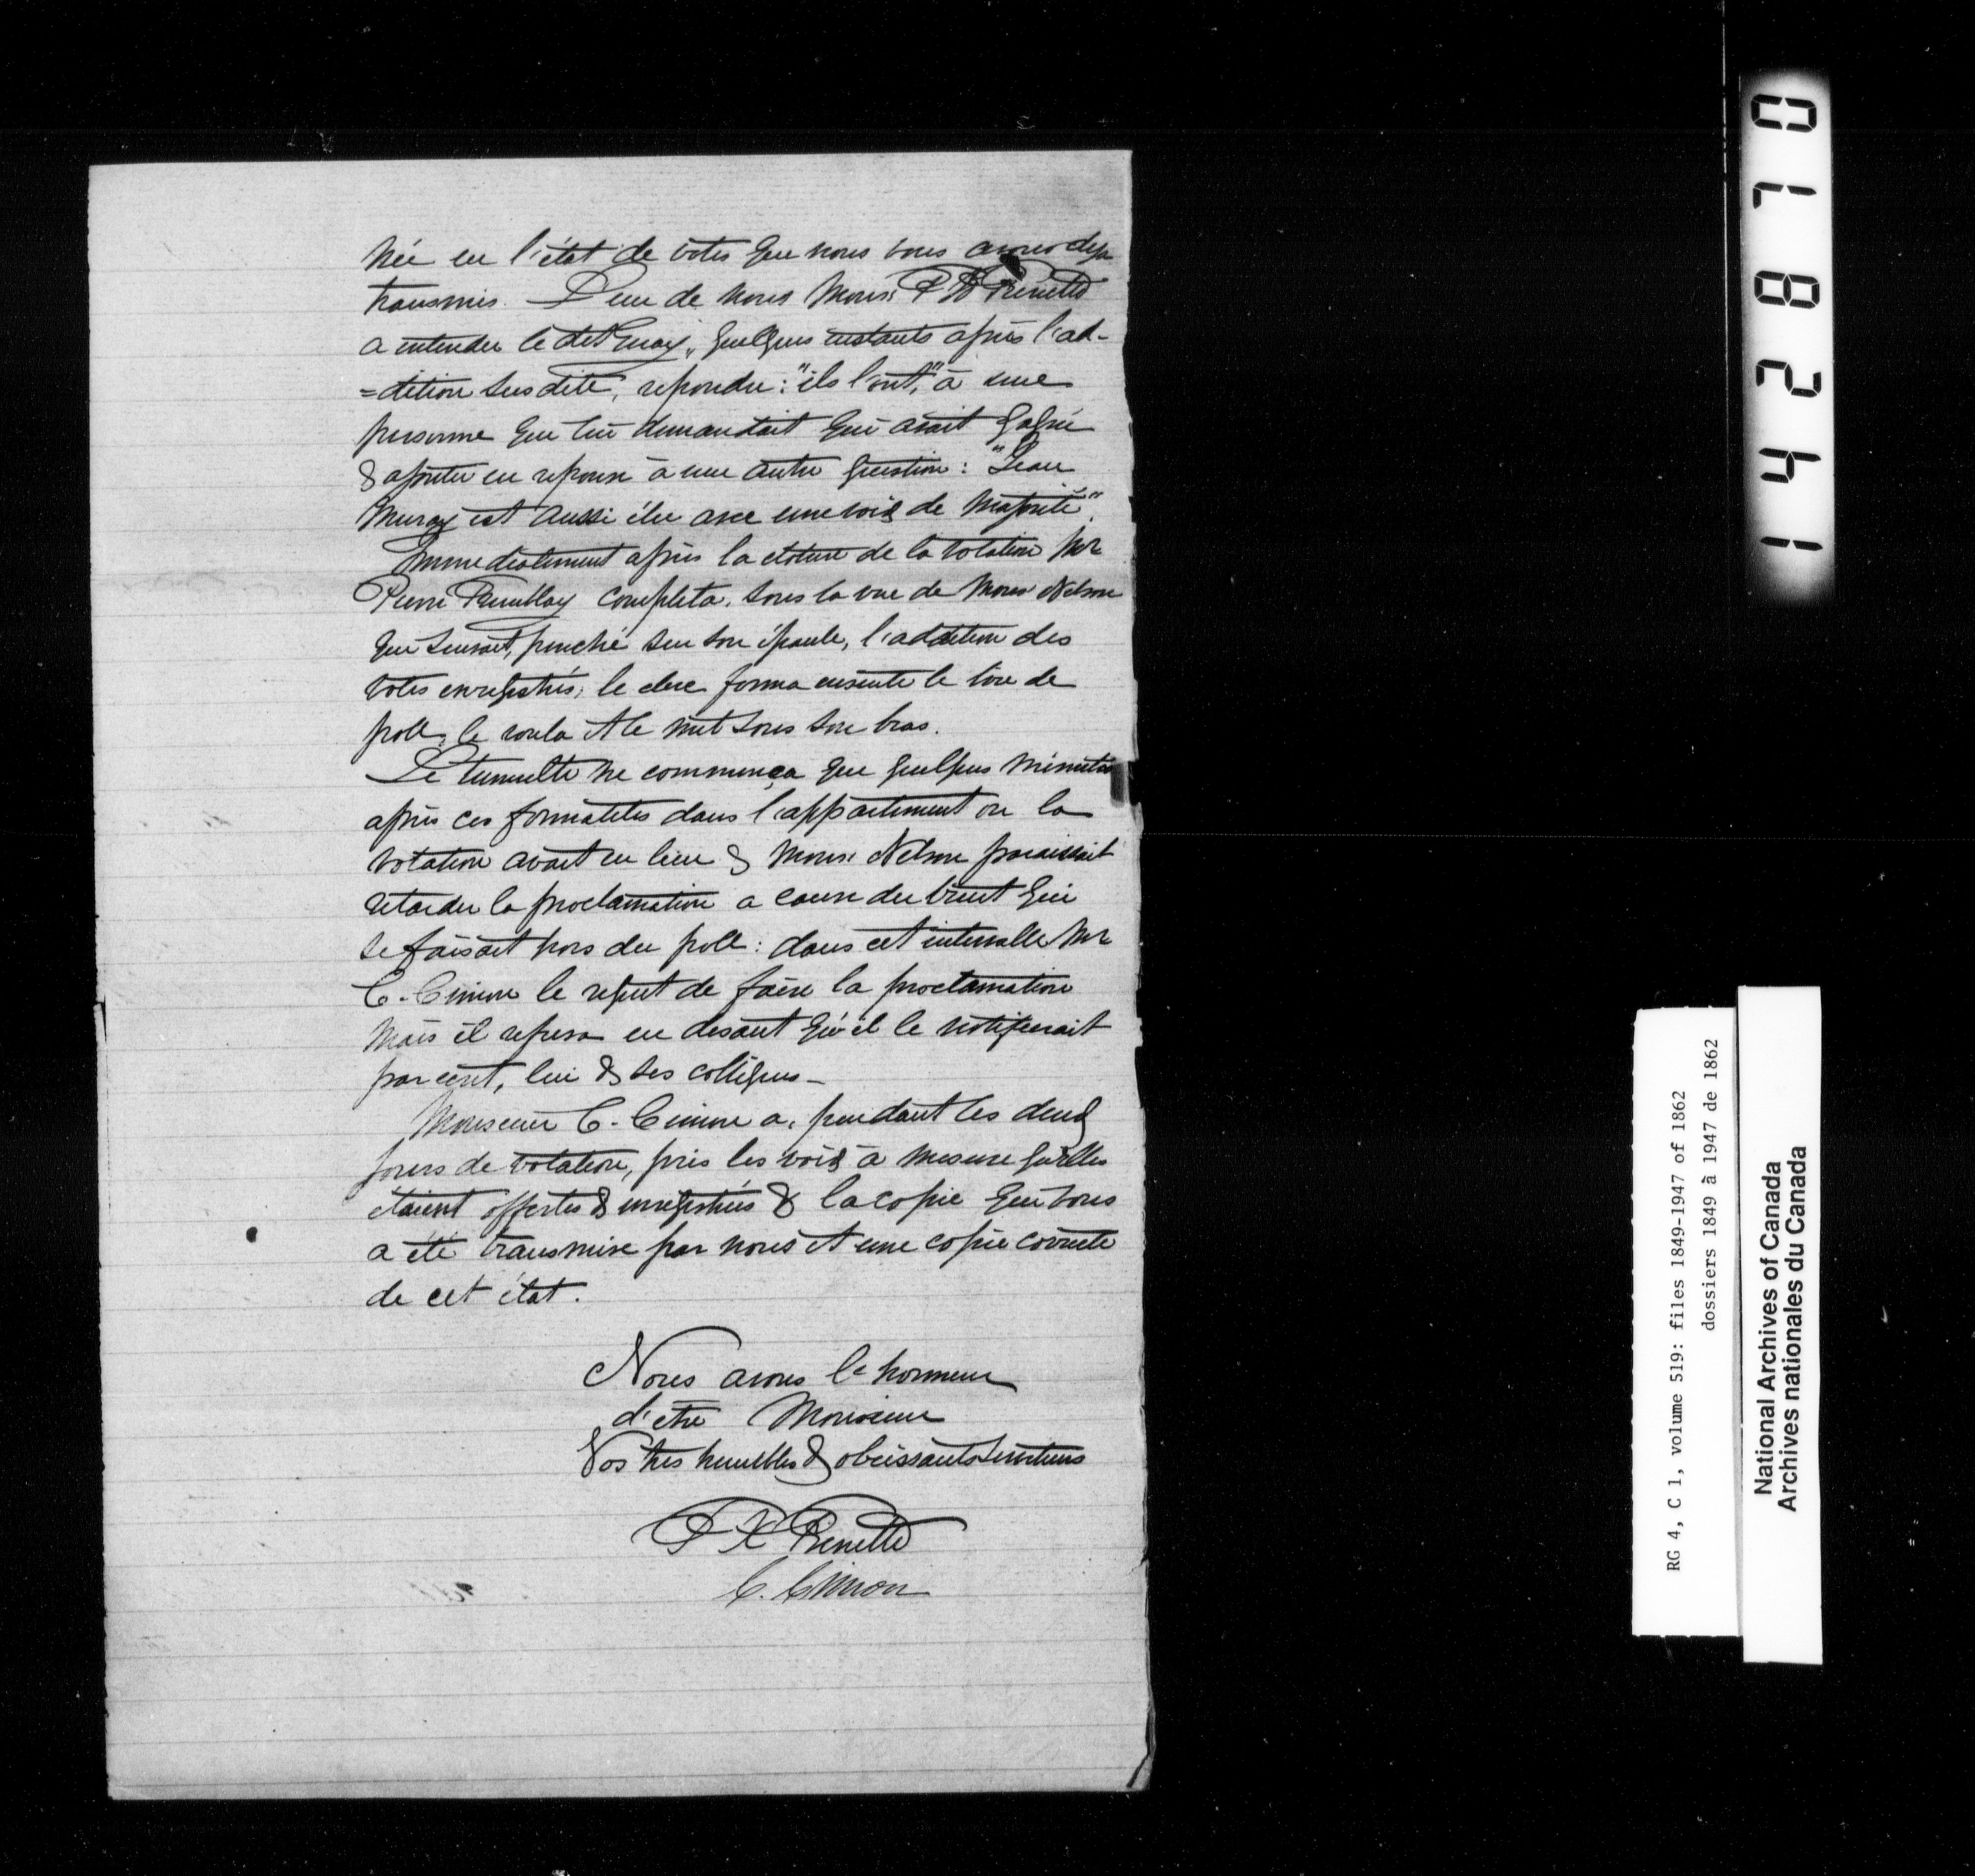 née en l'état de votes que nous vous avons deja
transmis. L'un de nous Mons: P H Pinette
a entendu le dit Guay, quelques instants après l'ad-
=dition susdite, repondre: "ils l'ont," à une
personne qui lui demandait qui avait gagné
& ajouter en reponse à une autre question: "Jean
Murray est aussi élu avec une voix de majorité".
Immediatement après la cloture de la votation Mr
Pierre Tremblay completa, sous la vue de Mons: Nelson
qui suivait, penché sur son épaule, l'addition des
votes enregistrés; le clerc ferma ensuite le livre de
poll, le roula et le mit sous son bras.
Le tumulte ne commença que quelques minutes
après ces formalités dans l'appartement ou la
votation avait eu lieu & Mons: Nelson paraissait
retarder la proclamation a cause du bruit qui
se faisait hors du poll: dans cet intervalle Mr
C. Cimon le requit de faire la proclamation
mais il refusa en disant qu'il le notifierait
par écrit, lui & ses collègues -
Monsieur C. Cimon a, pendant les deux
jours de votation, pris les voix à mesure qu'elles
étaient offertes & enregistrées & la copie qui vous
a été transmise par nous est une copie correcte
de cet état.
Nous avons l'honneur
d'etre Monsieur
Vos tres humbles & obeissants serviteurs
C. Cimon
1 4 2 8 7 0
RG 4, C 1, volume 519: files 1849-1947 of 1862
dossiers 1849 à 1947 de 1862
National Archives of Canada
Archives nationales du Canada